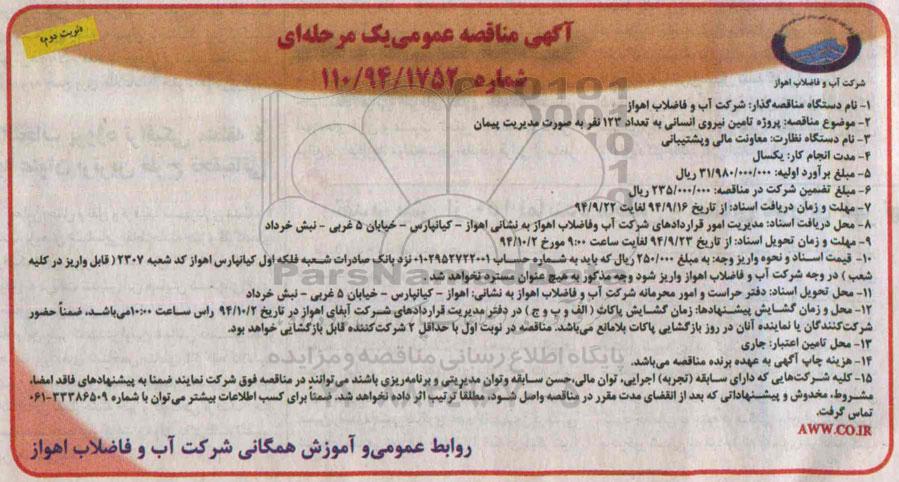 «نوبت دوم»
آگهی مناقصه عمومی یک مرحله‌ای
شماره ۱۱۰/۹۴/۱۷۵۲
شرکت آب و فاضلاب اهواز
۱- نام دستگاه مناقصه‌گذار: شرکت آب و فاضلاب اهواز
۲- موضوع مناقصه: پروژه تامین نیروی انسانی به تعداد ۱۲۳ نفر به صورت مدیریت پیمان
۳- نام دستگاه نظارت: معاونت مالی وپشتیبانی
۴- مدت انجام کار: یکسال
۵- مبلغ برآورد اولیه: ۳۱/۹۸۰/۰۰۰/۰۰۰ ریال
۶- مبلغ تضمین شرکت در مناقصه: ۲۳۵/۰۰۰/۰۰۰ ریال
۷- مهلت و زمان دریافت اسناد: از تاریخ ۹۴/۹/۱۶ لغایت ۹۴/۹/۲۲
۸- محل دریافت اسناد: مدیریت امور قراردادهای شرکت آب وفاضلاب اهواز به نشانی اهواز - کیانپارس - خیابان ۵ غربی - نبش خرداد
۹- مهلت و زمان تحویل اسناد: از تاریخ ۹۴/۹/۲۳ لغایت ساعت ۹:۰۰ مورخ ۹۴/۱۰/۲
۱۰- قیمت اسناد و نحوه واریز وجه: به مبلغ ۲۵۰/۰۰۰ ریال که باید به شماره حساب ۰۱۰۲۹۵۲۷۲۲۰۰۱ نزد بانک صادرات شعبه فلکه اول کیانپارس اهواز کد شعبه ۲۳۰۷ ( قابل واریز در کلیه
شعب ) در وجه شرکت آب و فاضلاب اهواز واریز شود وجه مذکور به هیچ عنوان مسترد نخواهد شد.
۱۱- محل تحویل اسناد: دفتر حراست و امور محرمانه شرکت آب و فاضلاب اهواز به نشانی: اهواز - کیانپارس - خیابان ۵ غربی - نبش خرداد
۱۲- محل و زمان گشایش پیشنهادها: زمان گشایش پاکات ( الف و ب و ج ) در دفتر مدیریت قراردادهای شرکت آبفای اهواز در تاریخ ۹۴/۱۰/۲ راس ساعت ۱۰:۰۰می‌باشد، ضمناً حضور
شرکت‌کنندگان یا نماینده آنان در روز بازگشایی پاکات بلامانع می‌باشد. مناقصه در نوبت اول با حداقل ۲ شرکت‌کننده قابل بازگشایی خواهد بود.
۱۳- محل تامین اعتبار: جاری
۱۴- هزینه چاپ آگهی به عهده برنده مناقصه می‌باشد.
۱۵- کلیه شرکت‌هایی که دارای سابقه (تجربه) اجرایی، توان مالی،حسن سابقه وتوان مدیریتی و برنامه‌ریزی باشند می‌توانند در مناقصه فوق شرکت نمایند ضمنا به پیشنهادهای فاقد امضا،
مشروط، مخدوش و پیشنهاداتی که بعد از انقضای مدت مقرر در مناقصه واصل شود، مطلقا ترتیب اثر داده نخواهد شد. ضمناً برای کسب اطلاعات بیشتر می‌توان با شماره ۳۳۳۸۶۵۰۹-۰۶۱
تماس گرفت.
AWW.CO.IR
روابط عمومی و آموزش همگانی شرکت آب و فاضلاب اهواز
پایگاه اطلاع رسانی مناقصه و مزایده